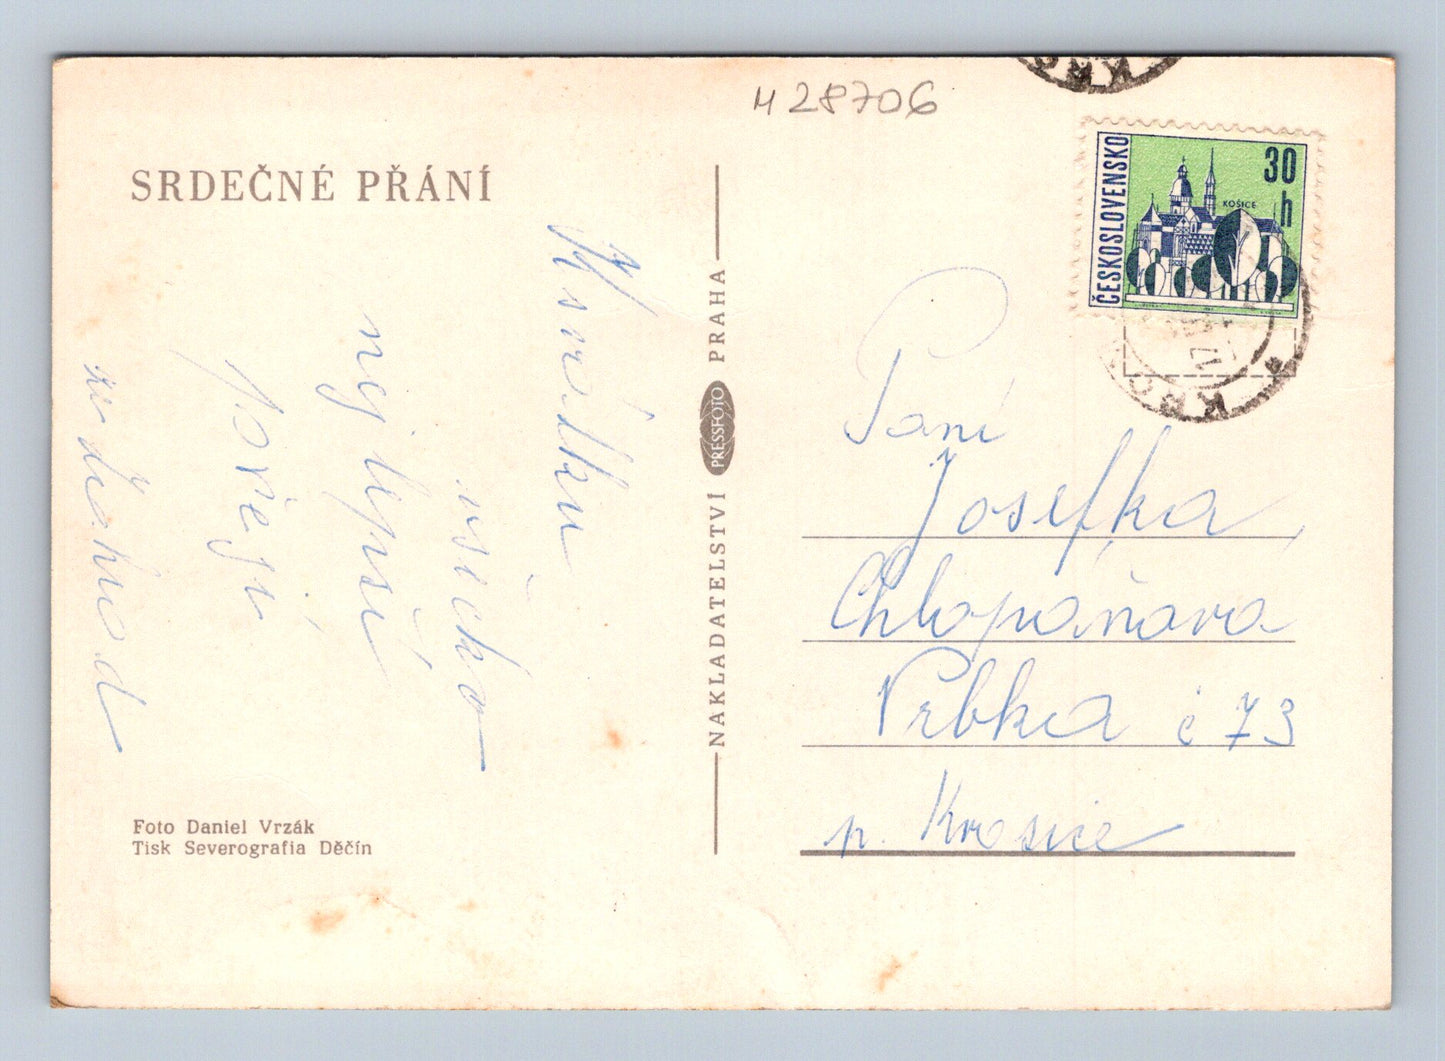 И 28706
SRDEČNÉ PŘÁNÍ
K svátku
všicko
nejlepší
Přeji
NAKLADATELSTVÍ PRESSFOTO PRAHA
ČESKOSLOVENSKO
30
h
KOŠICE
Paní
Josefka
Chlopaňová
Vrbka č 73
p. Krasice
Foto Daniel Vrzák
Tisk Severografia Děčín